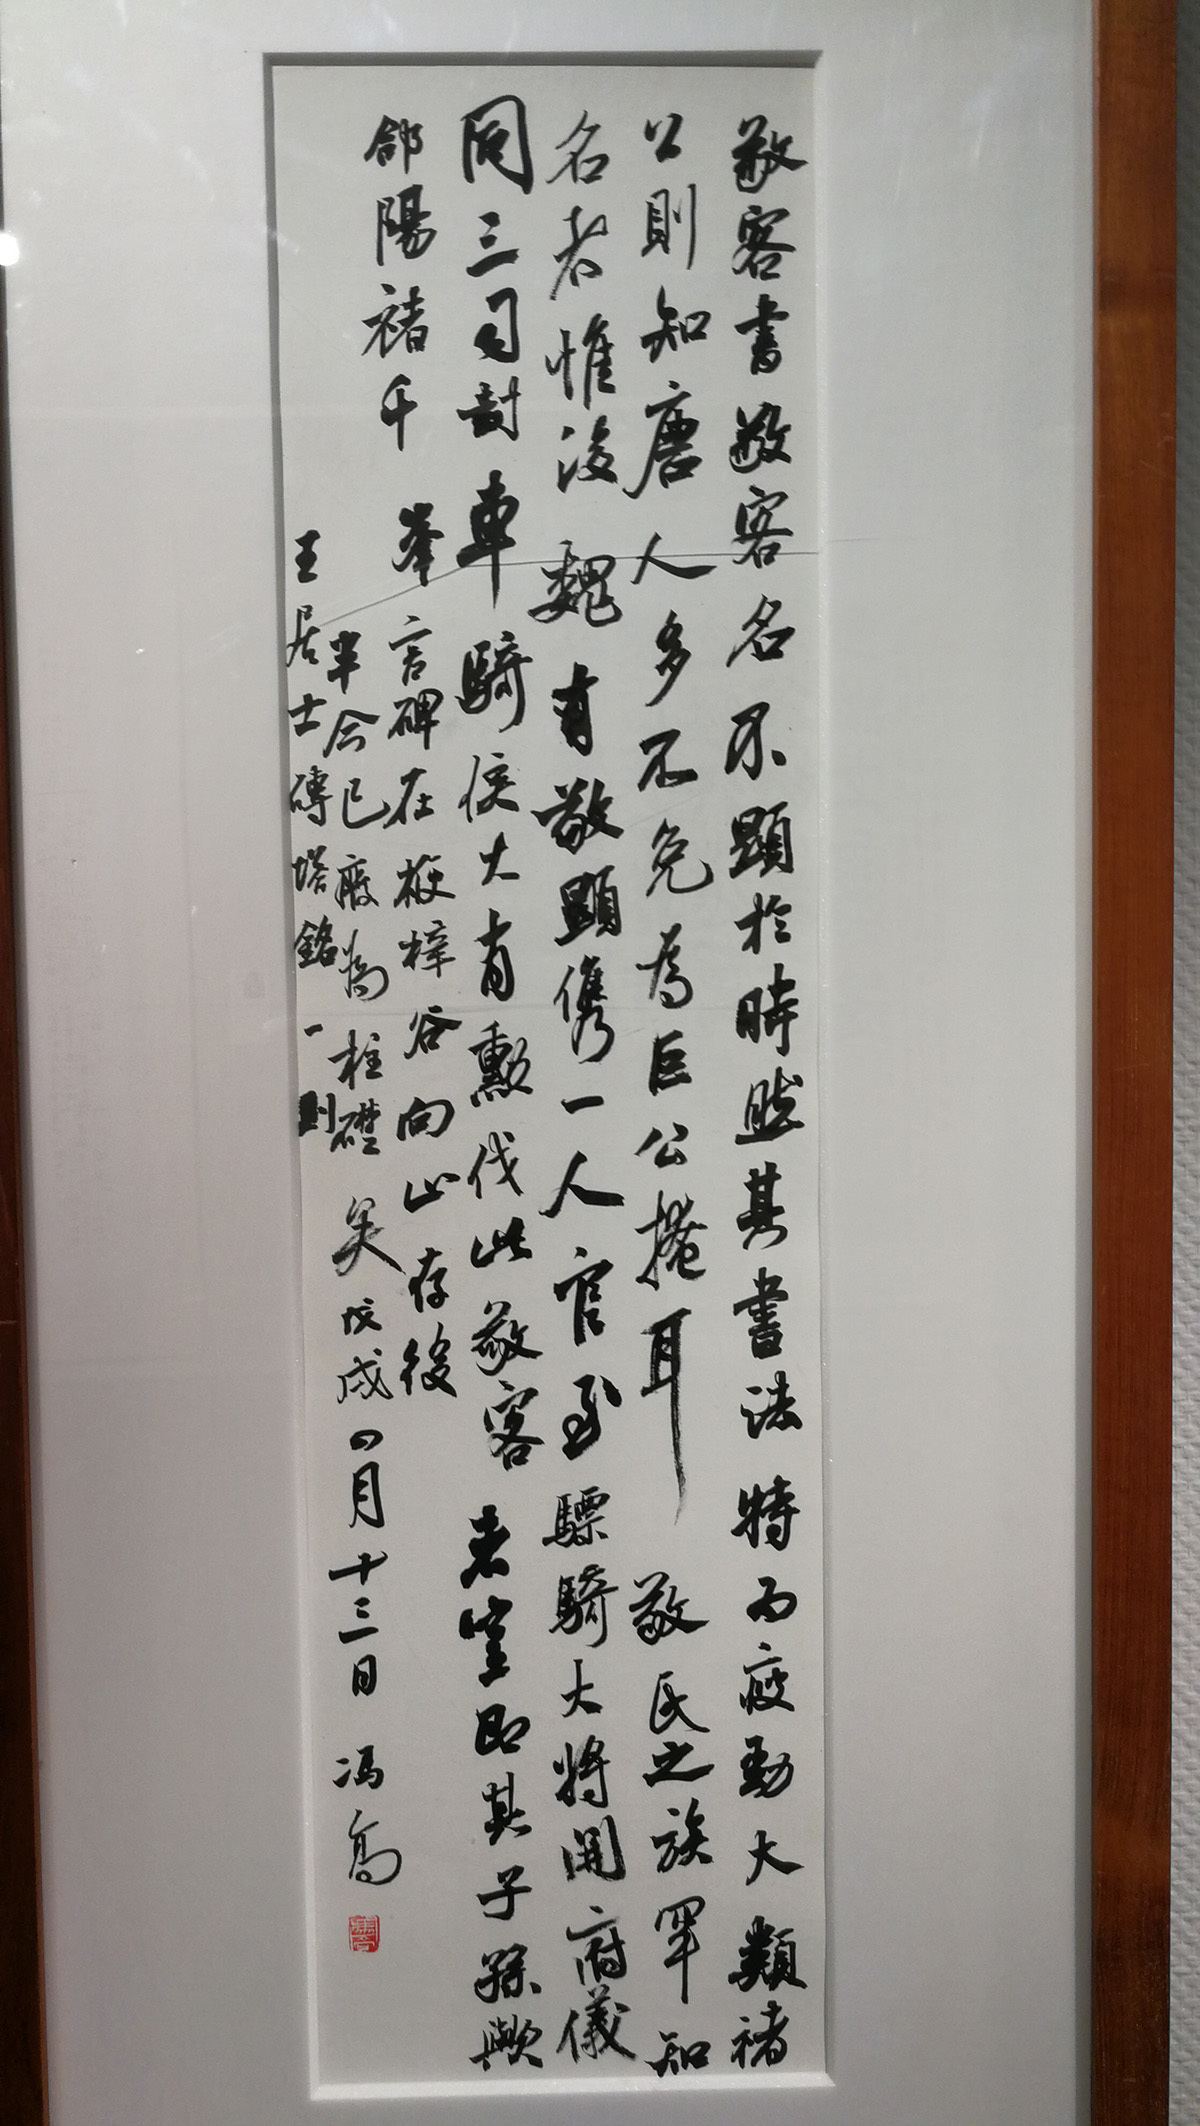 敬客書敬客名不顯於時然其書法特為疲勁大類褚
公則知唐人多不免為巨公掩耳敬氏之族罕知
名者惟後魏有敬顯儁一人官至驃騎大將開府儀
同三司封車騎侯大有勲伐此敬客者豈即其子孫歟
郃陽褚千峯言碑在楩梓谷向山存後
半今已廢為柱礎矣戊戌四月十三日馮高
王居士磚塔銘一則